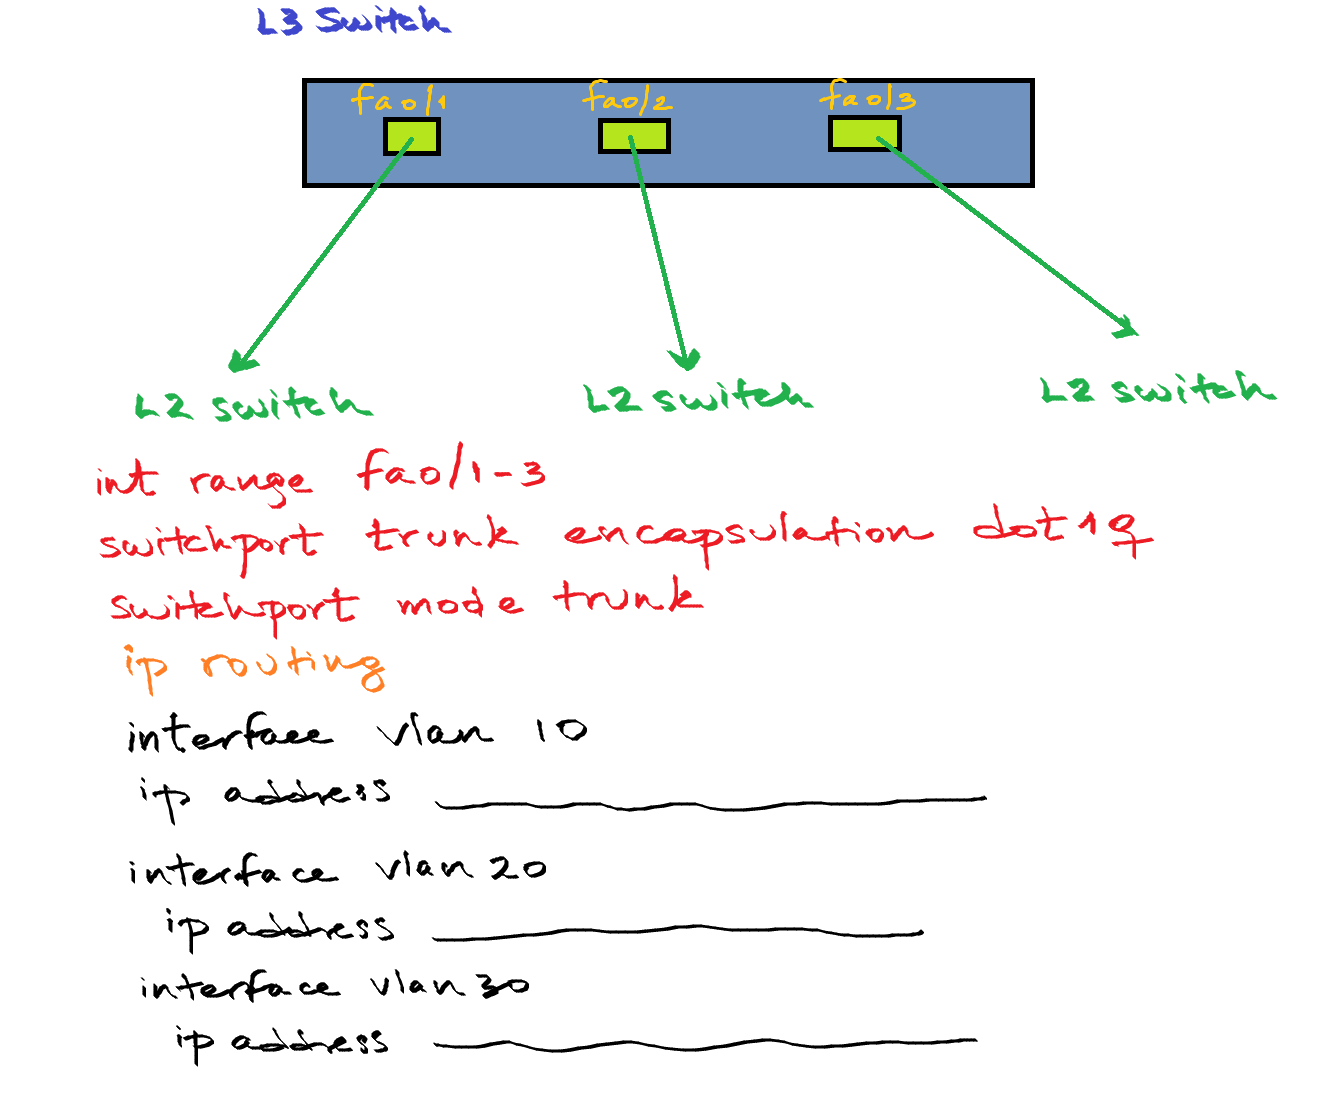 L3 Switch
fa0/1 fa0/2 fa0/3
L2 switch L2 switch L2 switch
int range fa0/1-3
switchport trunk encapsulation dot1q
switchport mode trunk
ip routing
interface vlan 10
ip address
interface vlan 20
ip address
interface vlan 30
ip address